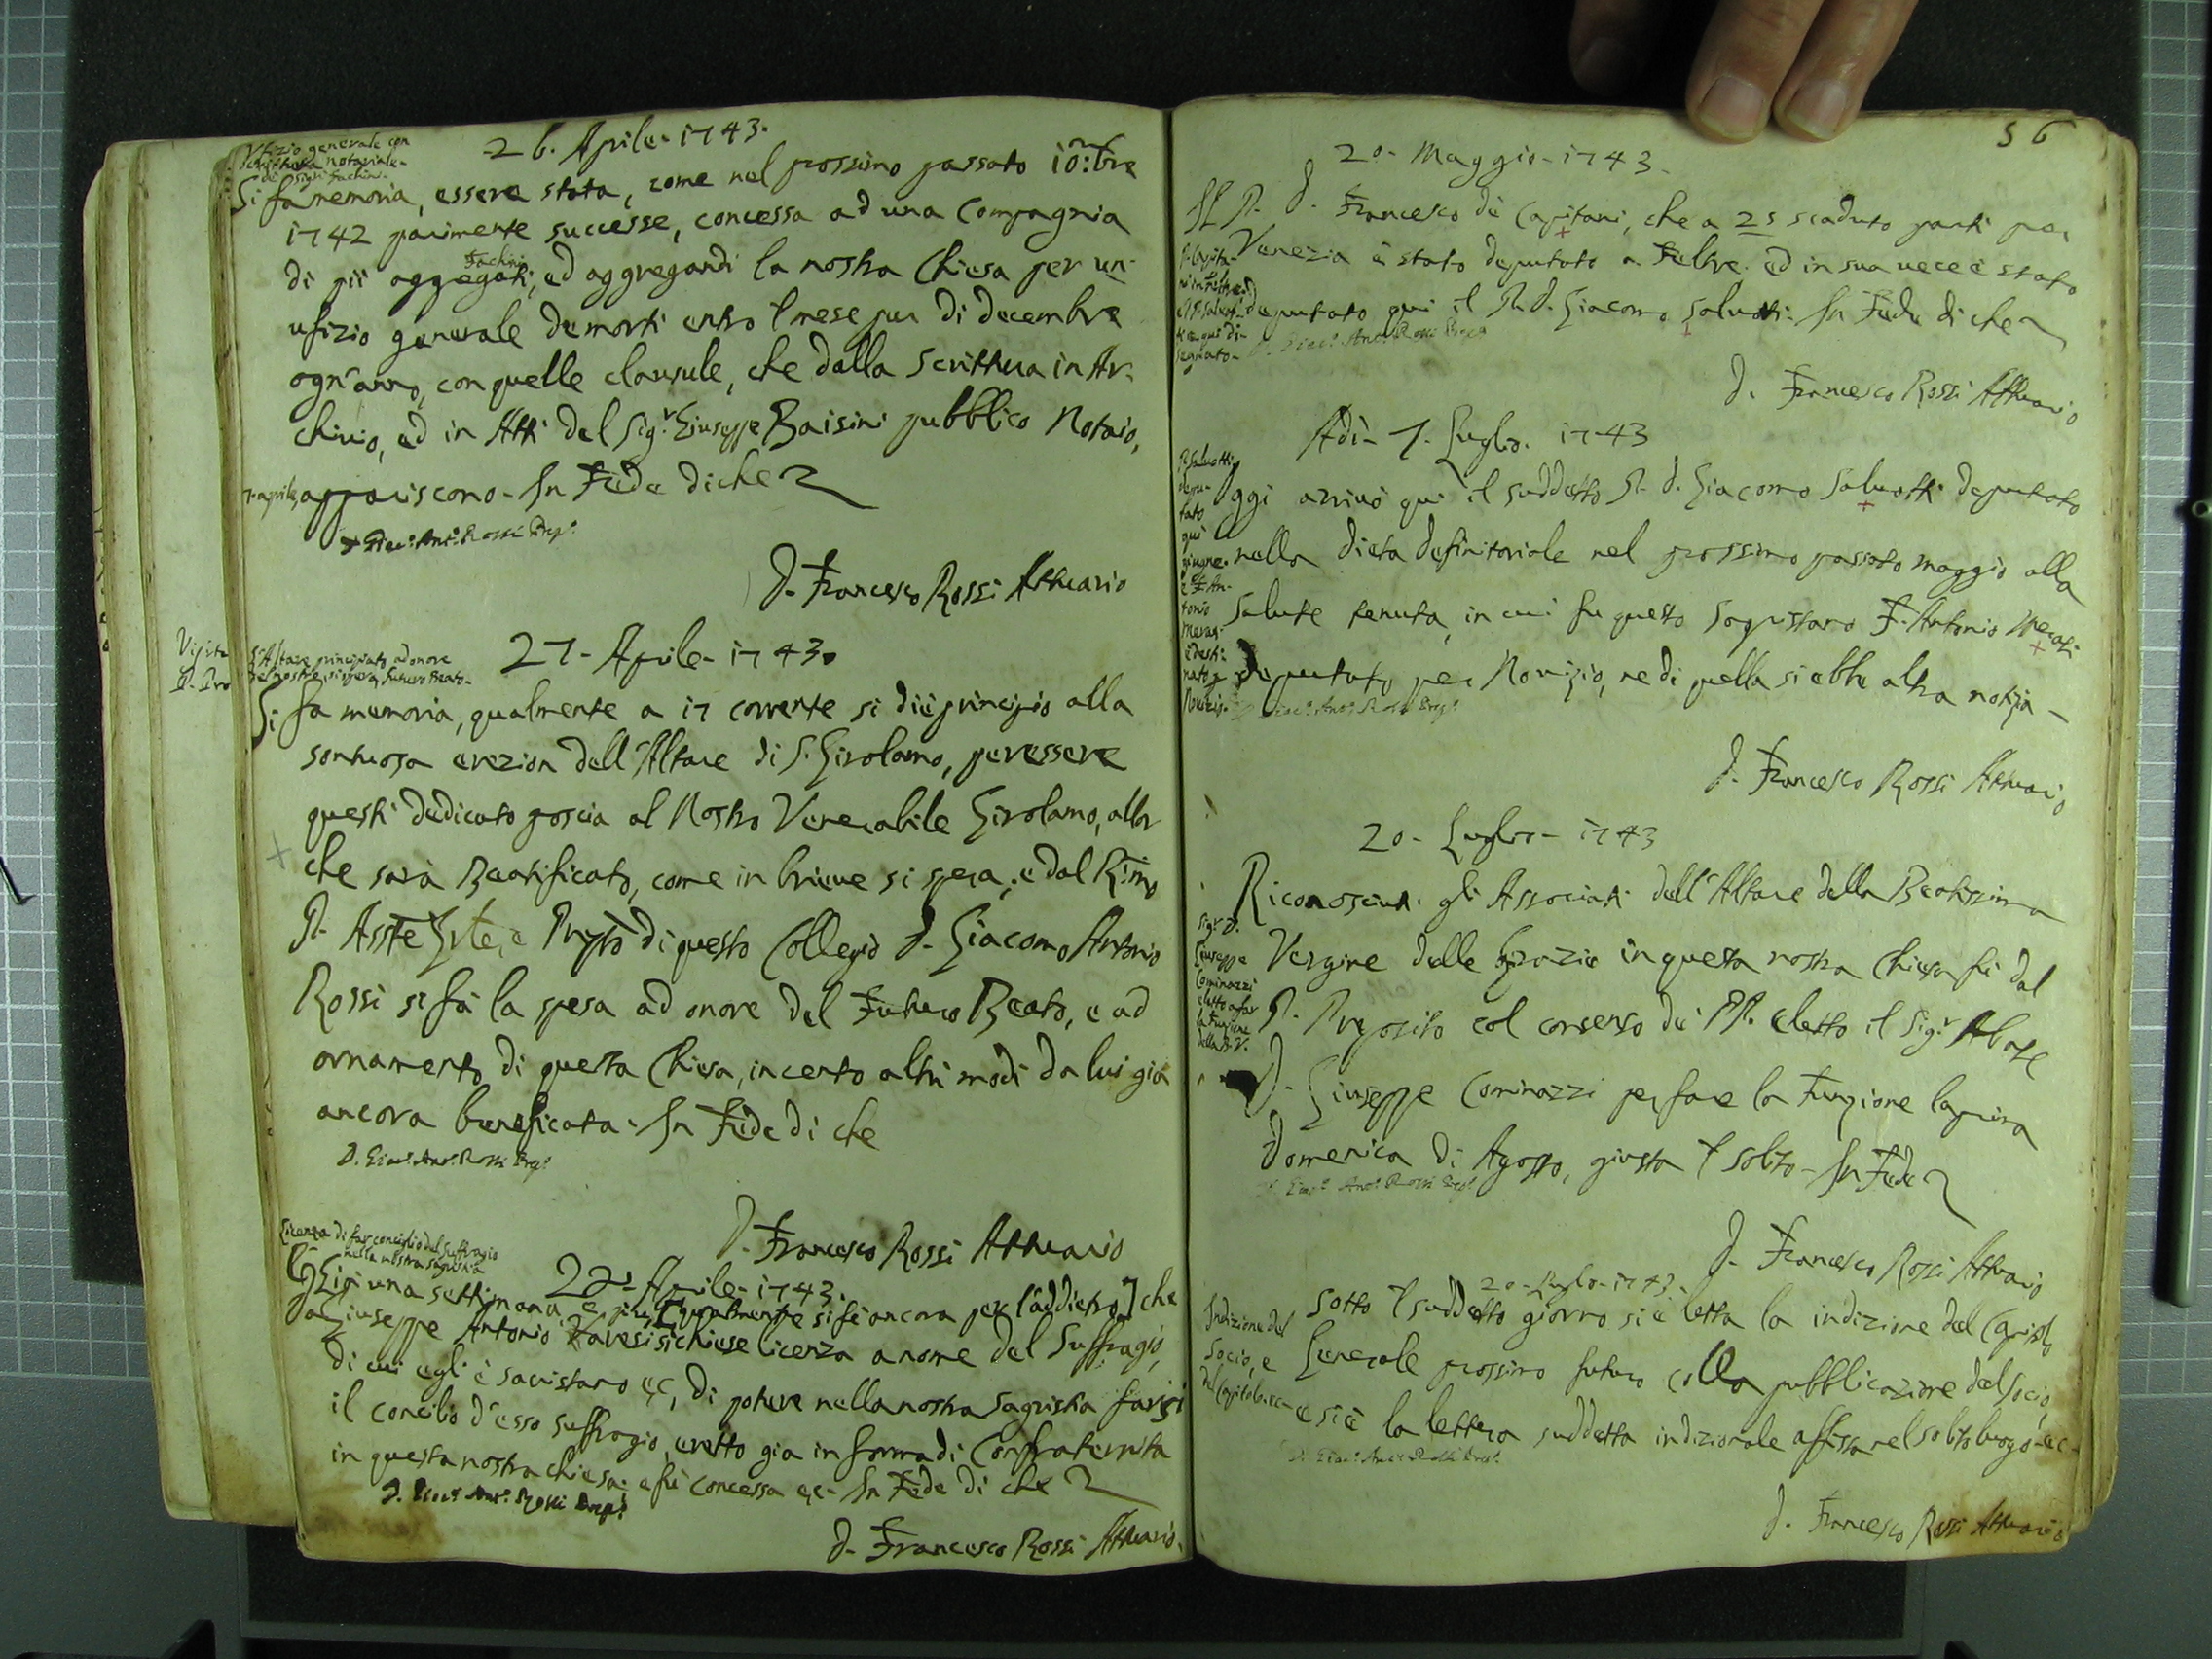 26. Aprile. 1743.
Ufizio generale con
scrittura notariale
de Sigri Fachini
Si fa memoria, essere stata, come nel prossimo passato 10:bre
1742 parimente successe, concessa ad una Compagnia
di più aggregati, ed aggregandi la nostra Chiesa per un
Fachini
ufizio generale de morti entro 'l mese pur di decembre
ogn'anno, con quelle clausule, che dalla Scrittura in Ar-
chivio, ed in Atti del Sig.r Giuseppe Baisini pubblico Notaio,
7. aprile appariscono. In Fede di che
D. Giac.o Ant.o Rossi Prep.o
D. Francesco Rossi Attuario
27. Aprile. 1743.
S'Altare principiato ad onore
del nostro, si spera, futuro Beato.
Si fa memoria, qualmente a 17 corrente si diè principio alla
sontuosa erezion dell'Altare di S. Girolamo, per essere
questi dedicato poscia al Nostro Venerabile Girolamo, allor
che sarà Beatificato, come in brieve si spera; e dal R.mo
P. Asste Gnle, e Prepto di questo Collegio D. Giacomo Antonio
Rossi si fà la spesa ad onore del Futuro Beato, e ad
ornamento di questa Chiesa, in cento altri modi da lui già
ancora beneficata. In Fede di che
D. Giac.o Ant.o Rossi Prep.o
D. Francesco Rossi Attuario
Licenza di far conciglio del Suffragio
nella nostra sagristia
22. Aprile. 1743.
una settimana, e più [qualmente si fè ancora per l'addietro] che
da Giuseppe Antonio si chiese licenza a nome del Suffragio,
di cui egli è sacristano ec, di potere nella nostra Sagristia farsi
il concilio d'esso suffragio, eretto gia in forma di Confraternita
in questa nostra chiesa; e fù concessa ec. In Fede di che
D. Giac.o Ant.o Rossi Prep.o
D. Francesco Rossi Attuario.
56
20. Maggio. 1743.
Il P. D. Francesco de Capitani, che a 25 scaduto partì per
Venezia è stato deputato a Feltre. ed in sua vece è stato
deputato qui il P. D. Giacomo Salvotti. In Fede di che
P. Capita-
ni in Feltre ed
il P. Salvot-
ti è qui di-
segnato.
D. Giac.o Ant.o Rossi Prep.o
D. Francesco Rossi Attuario
Adì. 7. Luglio. 1743
Oggi arrivò quì il suddetto P. D. Giacomo Salvotti deputato
nella dieta definitoriale nel prossimo passato maggio alla
Salute tenuta, in cui fu questo Sagristano F. Antonio Merati
deputato per Novizio, ne di quella si ebbe altra notizia
P. Salvotti
depu-
tato
quì
giugne.
e F. An-
tonio
Merati
è desti-
nato
Novizio.
D. Giac.o Ant.o Rossi Prep.o
D. Francesco Rossi Attuario
20. Luglio. 1743
Riconosciuti gli Associati dell'Altare della Beatissima
Vergine delle Grazie in questa nostra Chiesa fù dal
P. Preposito col consenso de' PP. eletto il Sig.r Abate
D. Giuseppe Cominazzi per fare la Funzione la prima
Domenica di Agosto, giusta 'l solito. In Fede
Sig.r D.
Giuseppe
Cominazzi
eletto a far
la Funzione
della B. V.
D. Giac.o Ant.o Rossi Prep.o
D. Francesco Rossi Attuario
20. Luglio. 1743.
Sotto 'l suddetto giorno si è letta la indizione del Capitolo
Generale prossimo futuro colla pubblicazione del Socio,
e si è la lettera suddetta indizionale affissa nel solito luogo. ec.
Indizione del
Socio, e
del Capitolo. ec.
D. Giac.o Ant.o Rossi Prep.o
D. Francesco Rossi Attuario